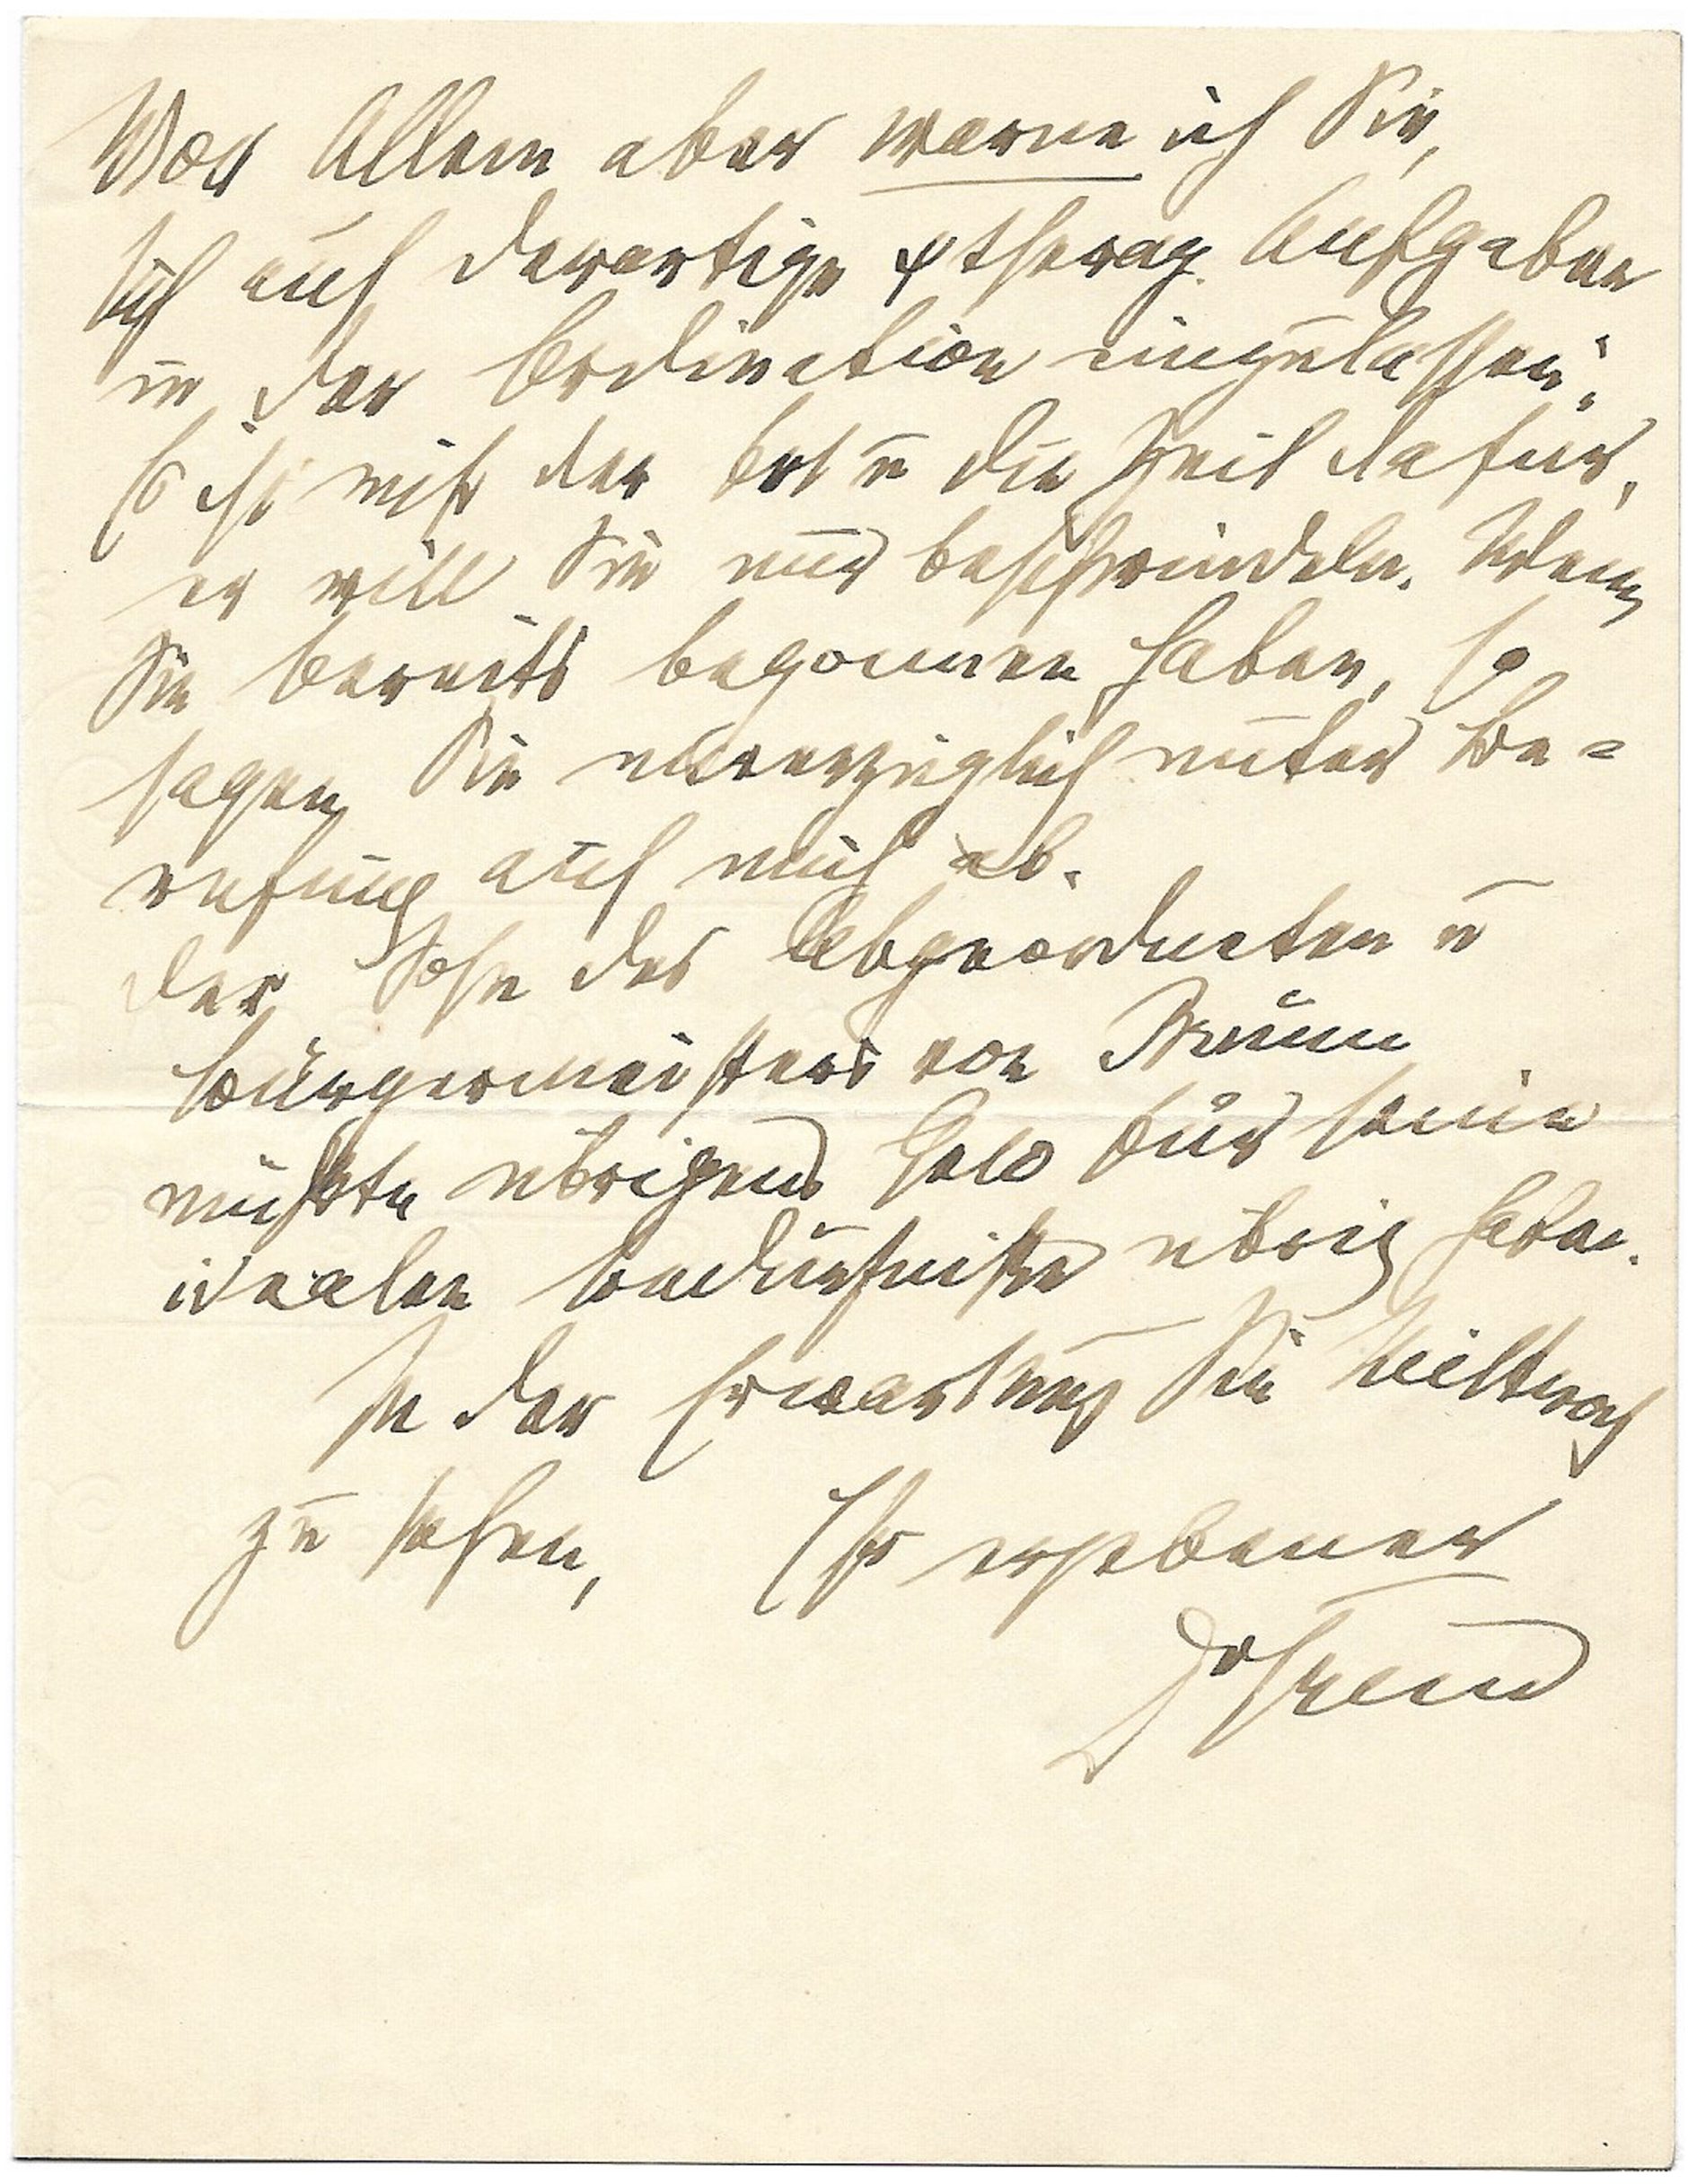 Vor Allem aber warne ich Sie,
sich auf derartige ψtherap. Aufgaben
in der Ordination einzulassen;
Es ist nicht der Ort u die Zeit dafür,
er will Sie nur beschwindeln. Wenn
Sie bereits begonnen haben, so
sagen Sie unverzüglich unter Be=
rufung auf mich ab.
Der Sohn des Abgeordneten u
Bürgermeisters von Brünn
müßte übrigens Geld für seine
idealen Bedürfnisse übrig haben.
In der Erwartung Sie Mittwoch
zu sehen, Ihr ergebener
DrFreud